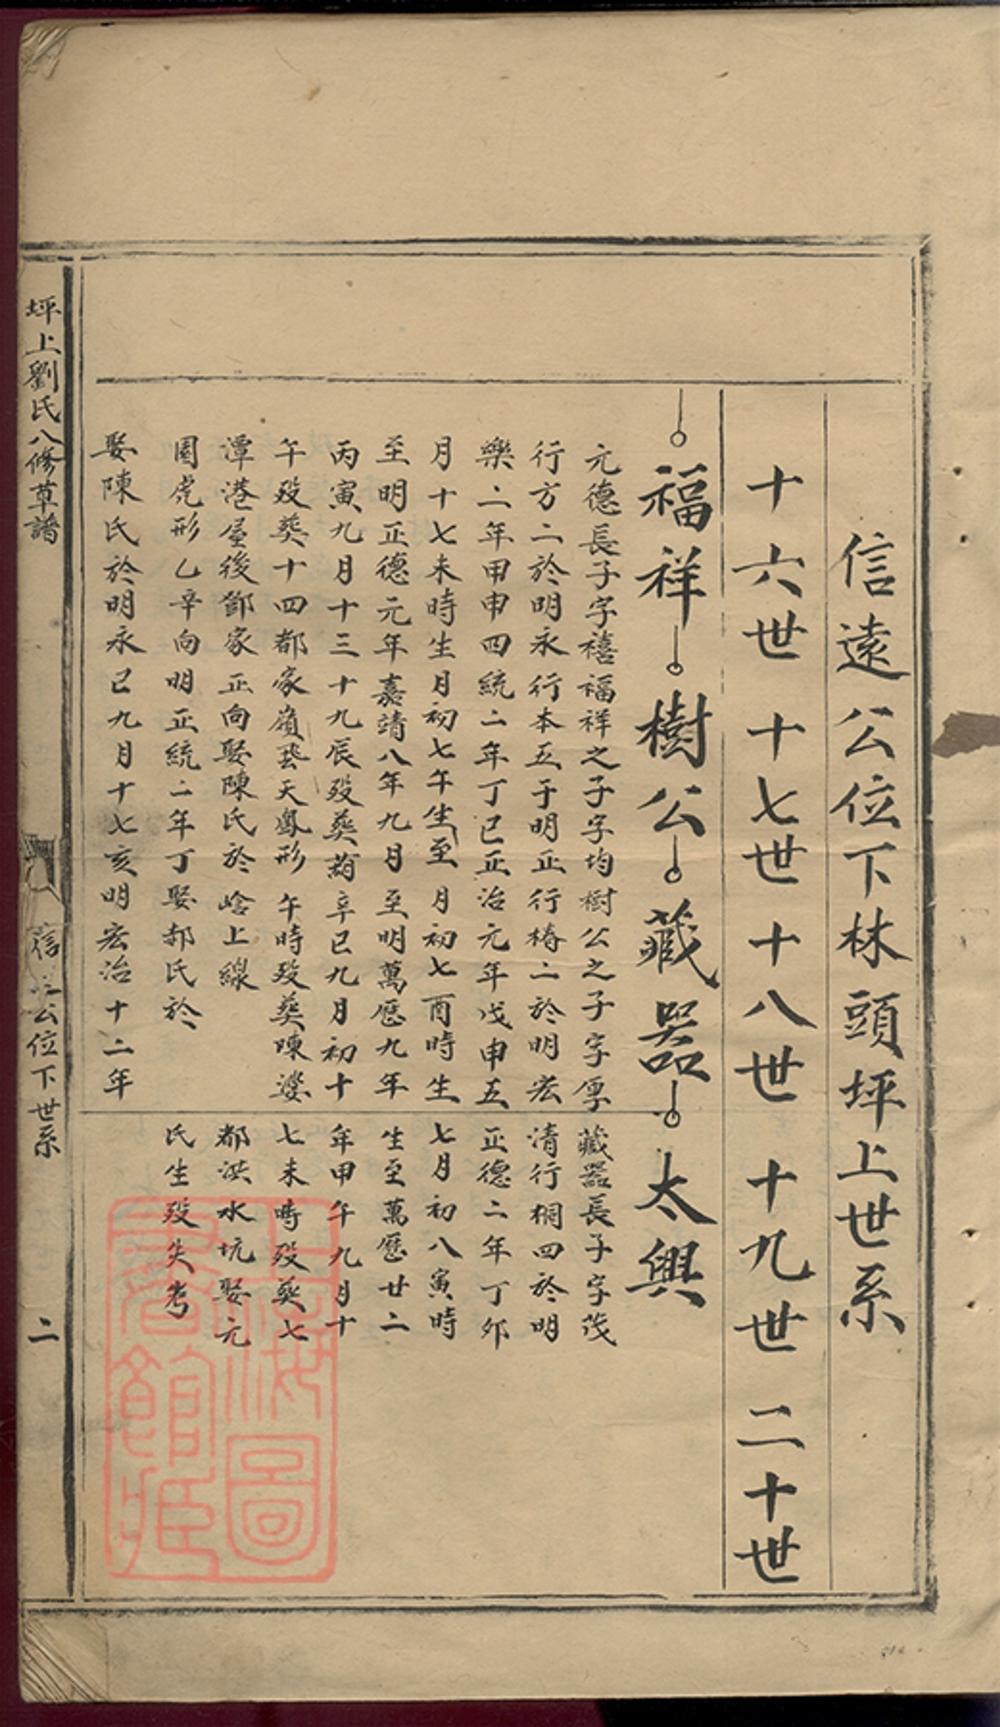 信遠公位下林頭坪上世系
十六世 十七世 十八世 十九世 二十世
福祥 樹公 藏器 太興
元德長子字禧福祥之子字均樹公之子字厚
行方二於明永行本五于明正行椿二於明宏
樂二年甲申四統二年丁巳正治元年戊申五
月十七未時生月初七午生至月初七酉時生
至明正德元年嘉靖八年九月至明萬歷九年
丙寅九月十三十九辰歿葬 辛巳九月初十
午歿葬十四都家嶺 天鳳形午時歿葬陳婆
潭港屋後鄧家正向娶陳氏於 上線
園虎形乙辛向明正統二年丁娶郝氏於
娶陳氏於明永巳九月十七亥明宏治十二年
藏器長子字茂
清行桐四於明
正德二年丁卯
七月初八寅時
生至萬歷廿二
年甲午九月十
七未時歿葬七
都洪水坑娶元
氏生歿失考
坪上劉氏八修草譜
信 公位下世系
二
上海圖書館藏